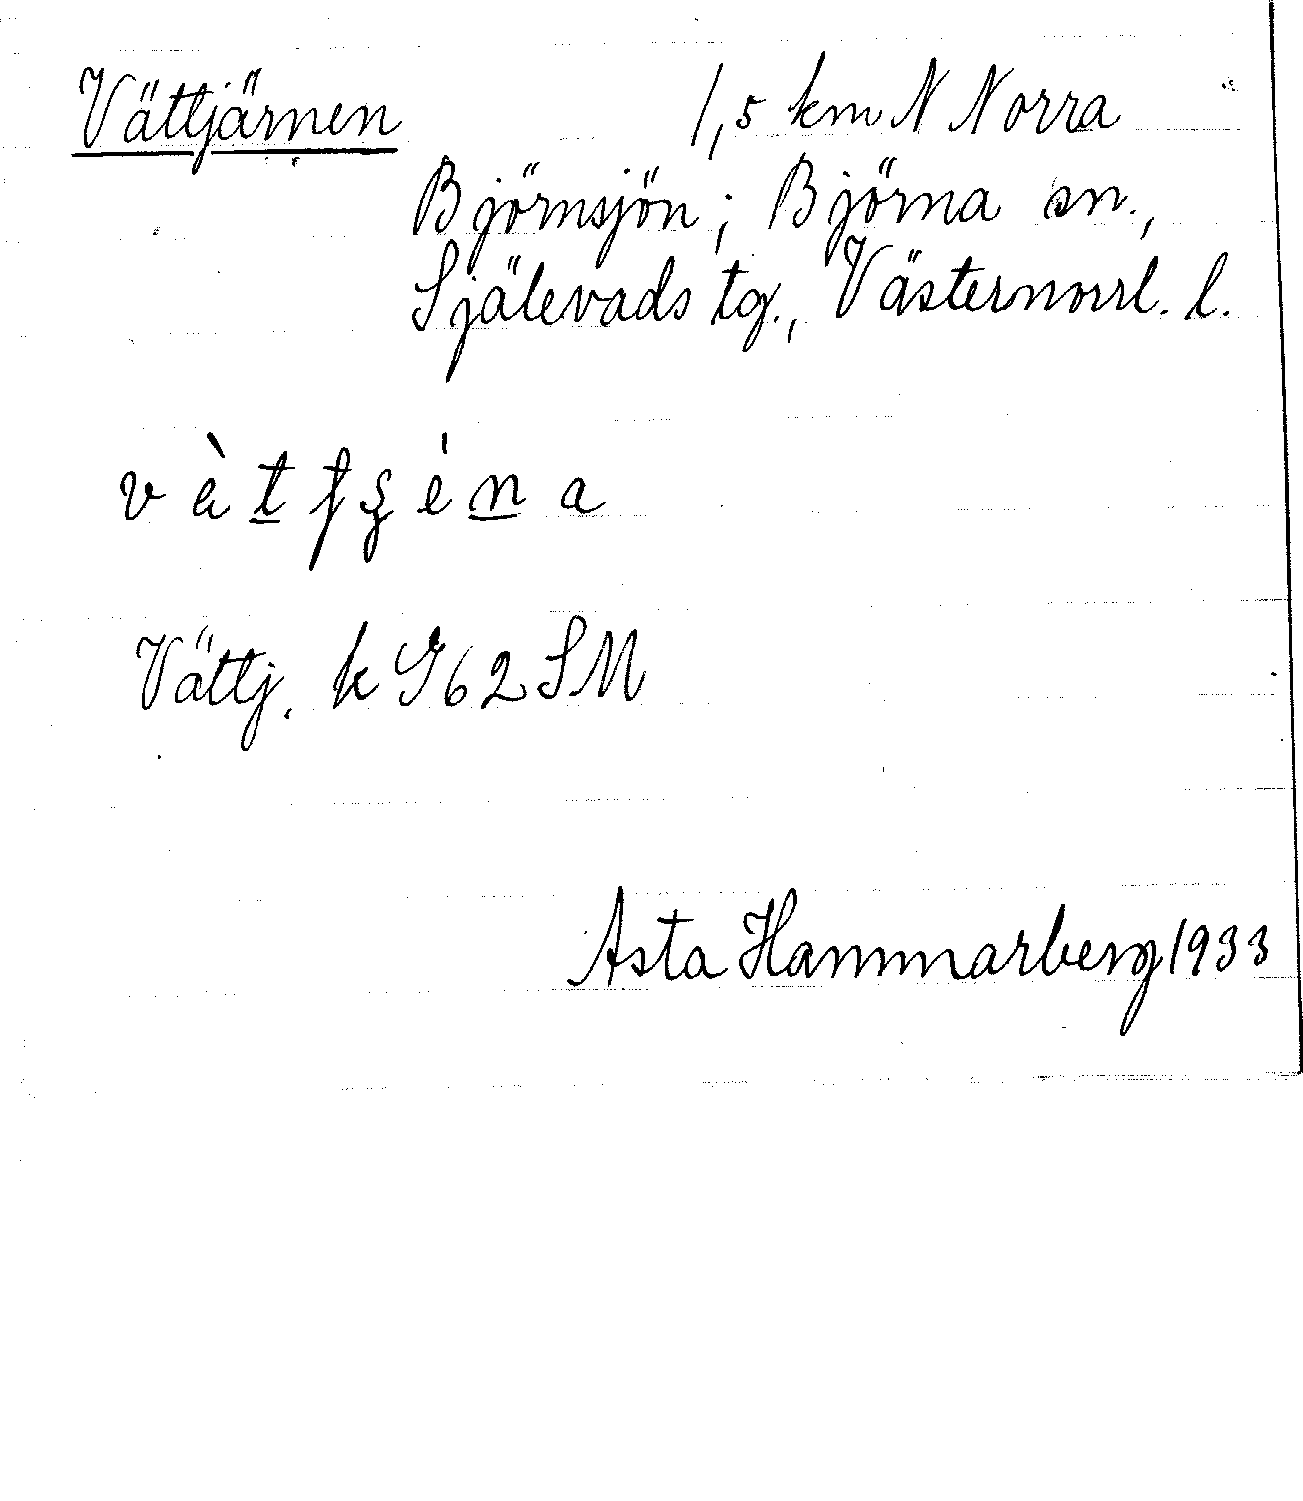 Vättjärnen 1,5 km N Norra
Björnsjön; Björna sn.,
Själevads tg., Västernorrl. l.
Vättj. k G62SM
Asta Hammarberg 1933